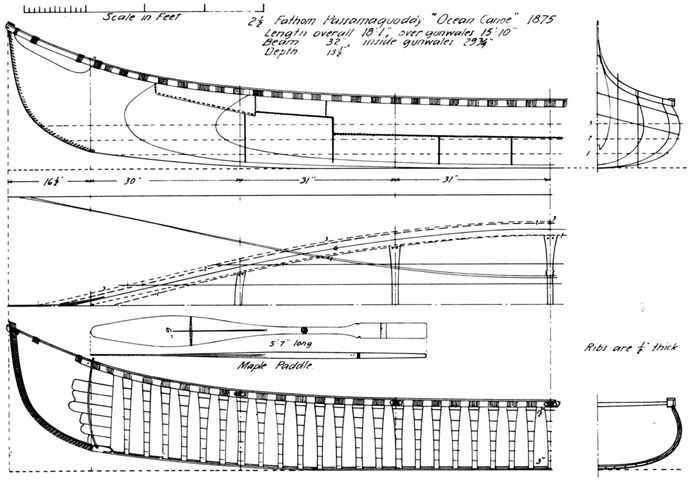 Scale in Feet
2½ Fathom Passamaquoddy "Ocean Canoe" 1875
Length overall 18'1", over gunwales 15'10"
Beam 32", inside gunwales 29¾"
Depth 13½"
3
2
1
16½"
30"
31"
31"
5'7" long
Maple Paddle.
Ribs are ½" thick
3"